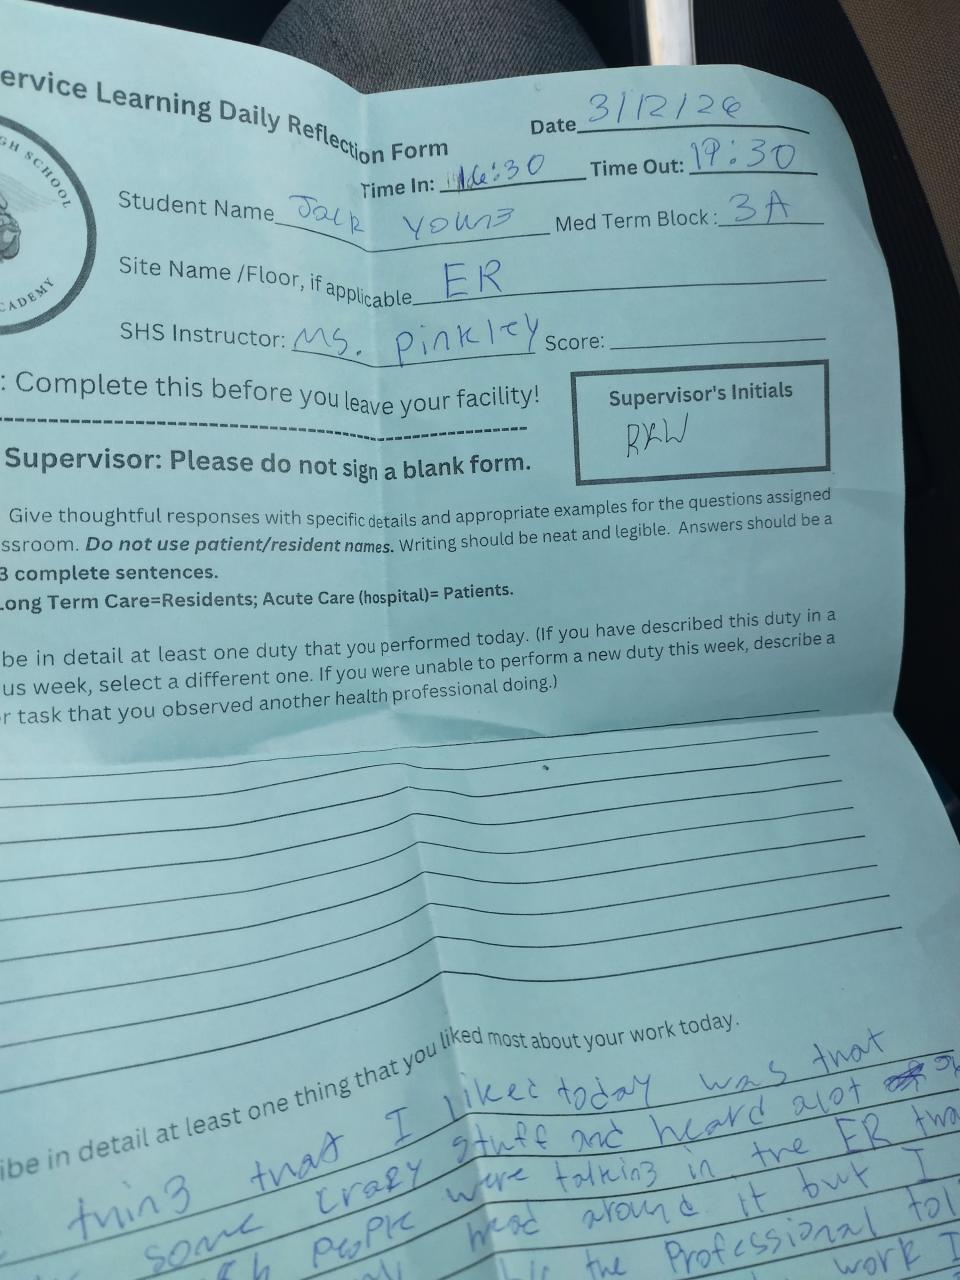 ervice Learning Daily Reflection Form
Date 3/12/26
GH SCHOOL
CADEMY
Time In: 16:30 Time Out: 19:30
Student Name Jack Young Med Term Block: 3A
Site Name /Floor, if applicable ER
SHS Instructor: Ms. Pinkley Score:
: Complete this before you leave your facility!
Supervisor's Initials
RKW
Supervisor: Please do not sign a blank form.
Give thoughtful responses with specific details and appropriate examples for the questions assigned
ssroom. Do not use patient/resident names. Writing should be neat and legible. Answers should be a
3 complete sentences.
Long Term Care=Residents; Acute Care (hospital)= Patients.
be in detail at least one duty that you performed today. (If you have described this duty in a
us week, select a different one. If you were unable to perform a new duty this week, describe a
r task that you observed another health professional doing.)
ibe in detail at least one thing that you liked most about your work today.
thing that I liked today was that
some crazy stuff and heard alot
people were talking in the ER
head around it but I
the Professional
work I